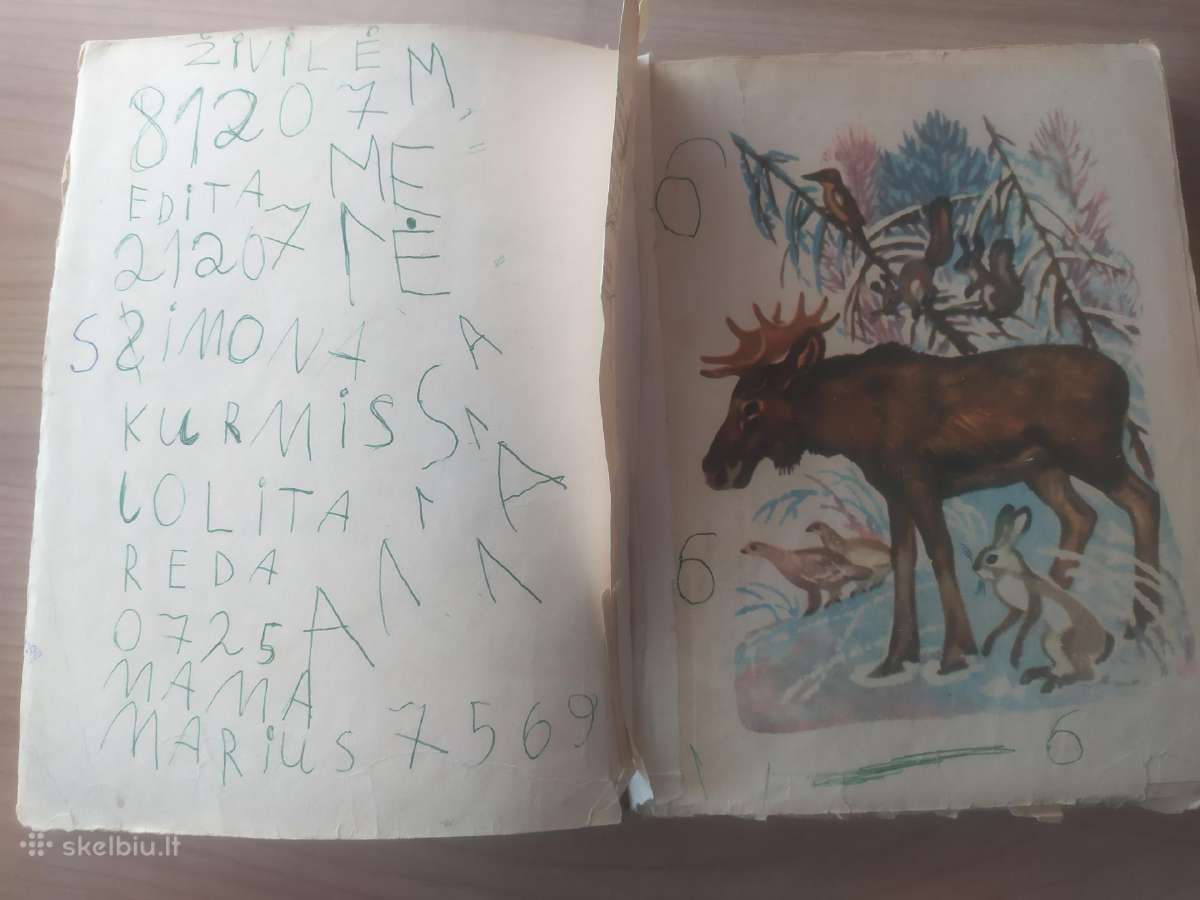 ŽIVILĖ M
81207
EDITA ME
21207 MĖ
SŽIMONA A
KURMIS S
LOLITA A
REDA
0725 A
MAMA
MARIUS 7569
6
6
6
skelbiu.lt